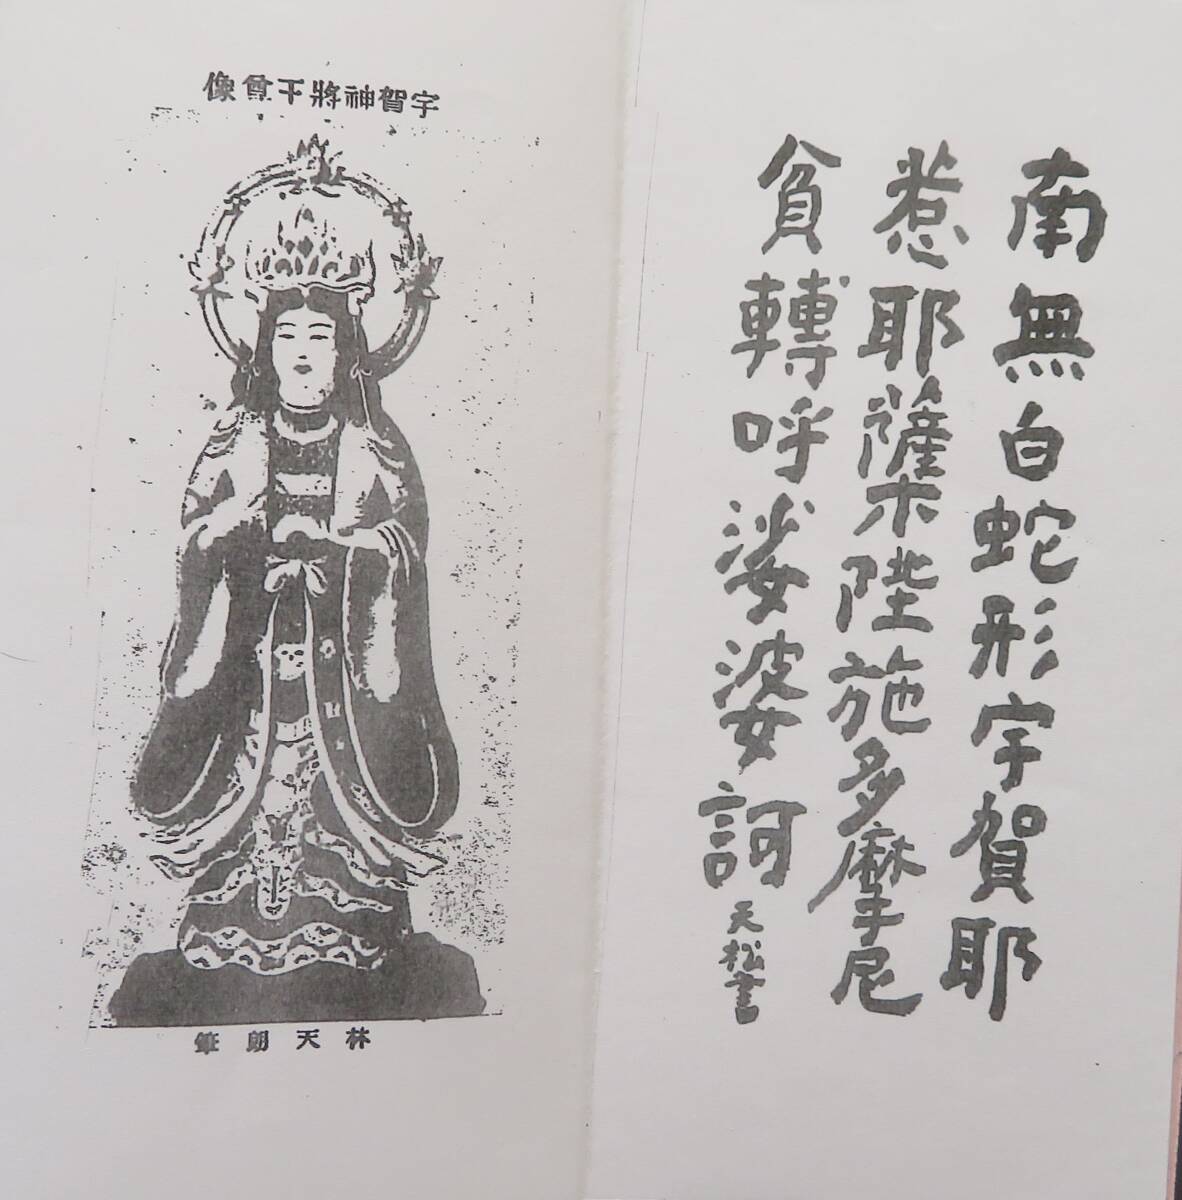 南無白蛇形宇賀耶
惹耶蘗陛施多摩尼
貧轉呼娑婆訶
天松書
宇賀神將王尊像
林天朗筆